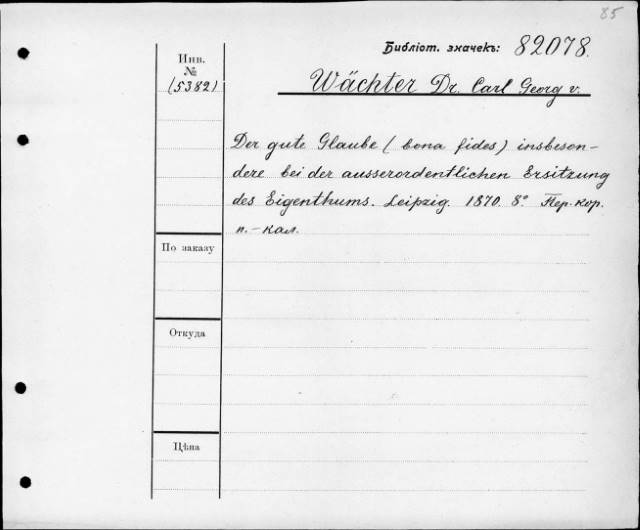 85
Библіот. значекъ: 82078.
Инв.
№
(5382)
Wächter Dr. Carl Georg v.
Der gute Glaube (bona fides) insbeson-
dere bei der ausserordentlichen Ersitzung
des Eigenthums. Leipzig. 1870. 8° Пер. кор.
п.-кал.
По заказу
Откуда
Цѣна